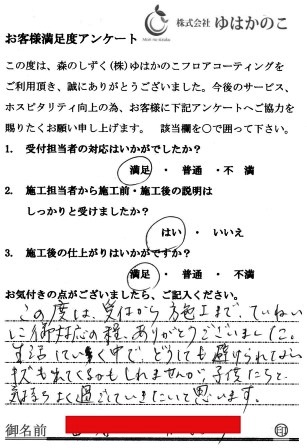 株式会社 ゆはかのこ
お客様満足度アンケート
この度は、森のしずく(株)ゆはかのこフロアコーティングを
ご利用頂き、誠にありがとうございました。今後のサービス、
ホスピタリティ向上の為、お客様に下記アンケートへご協力を
賜りたくお願い申し上げます。 該当欄を〇で囲って下さい。
1. 受付担当者の対応はいかがでしたか?
満足 ・ 普通 ・ 不 満
2. 施工担当者から施工前・施工後の説明は
しっかりと受けましたか?
はい ・ いいえ
3. 施工後の仕上がりはいかがですか?
満足 ・ 普通 ・ 不 満
お気付きの点がございましたら、ご記入ください。
この度は、受付から施工まで、ていねい
に御対応の程、ありがとうございました。
生活していく中で、どうしても避けられない
キズも出てくるかもしれませんが、子供たちと
気持ちよく過ごしていきたいと思います。
御名前
印